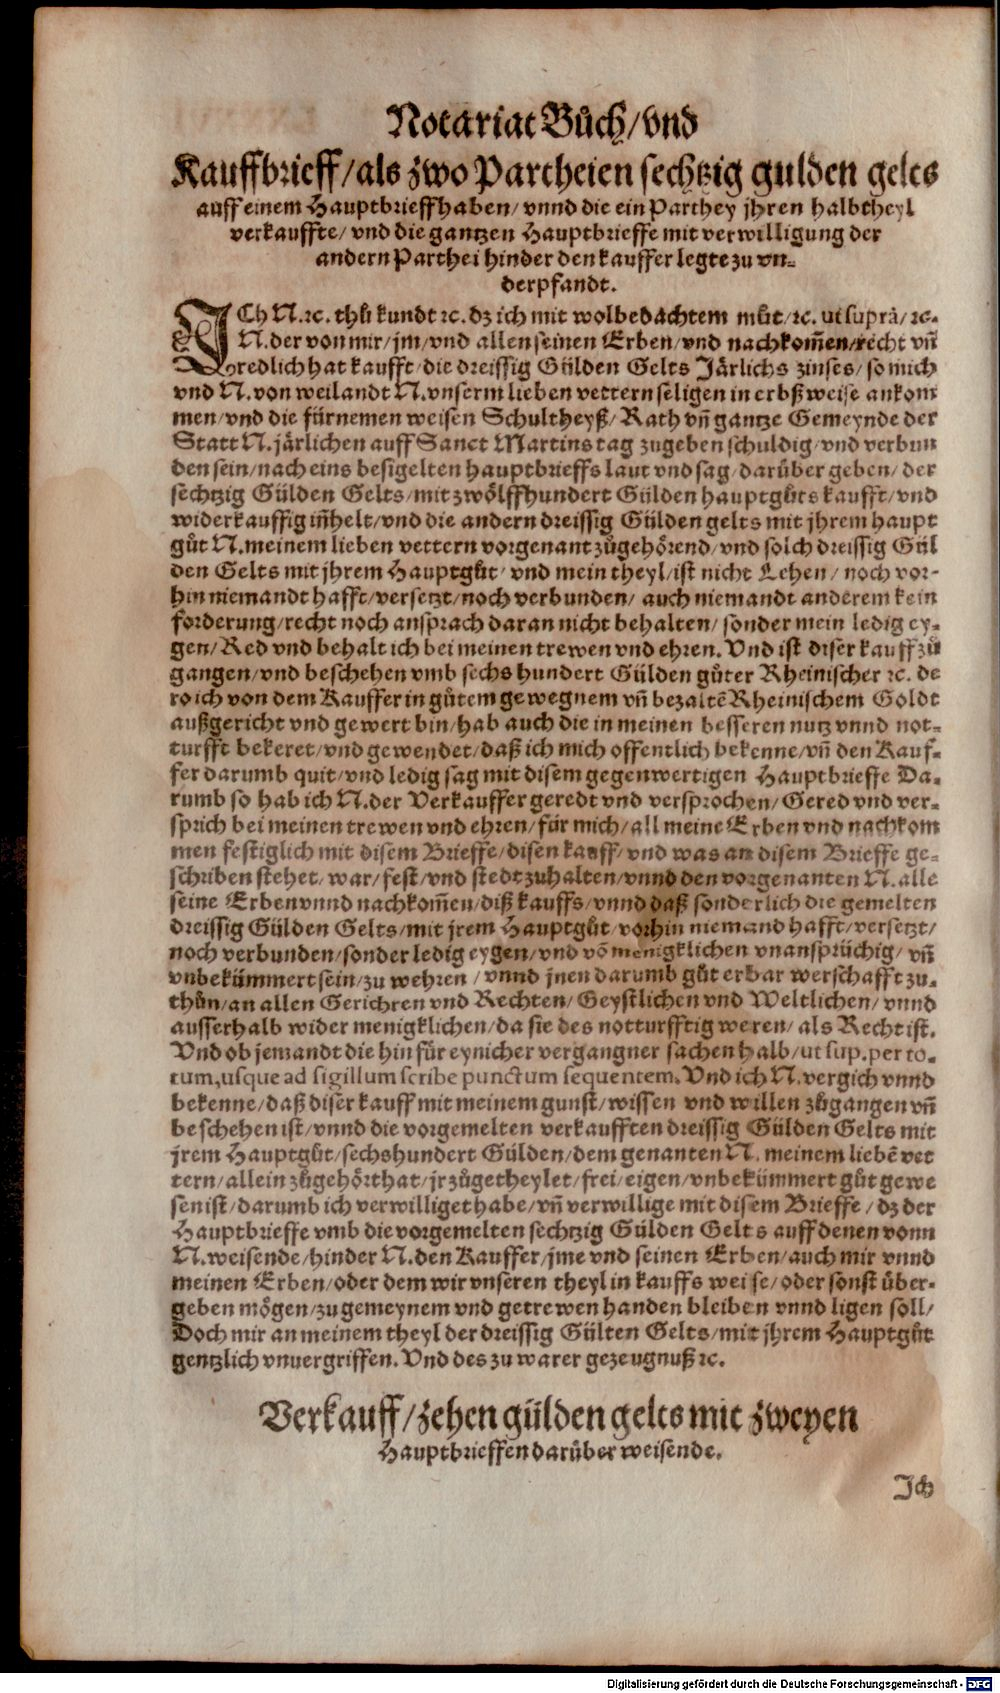 Notariat Bůch/ vnd
Kauffbrieff/ als zwo Partheien sechtzig gulden gelts
auff einem Hauptbrieff haben/ vnnd die ein Parthey jhren halbtheyl
verkauffte/ vnd die gantzen Hauptbrieffe mit verwilligung der
andern Parthei hinder den kauffer legte zu vn-
derpfandt.
ICh N. ꝛc. thů kundt ꝛc. dz ich mit wolbedachtem můt/ ꝛc. ut suprà/ ꝛc.
N. der von mir/ jm/ vnd allen seinen Erben/ vnd nachkom̃en/ recht vñ
redlich hat kaufft/ die dreissig Gülden Gelts Järlichs zinses/ so mich
vnd N. von weilandt N. vnserm lieben vettern seligen in erbß weise ankom
men/ vnd die fürnemen weisen Schultheyß/ Rath vñ gantze Gemeynde der
Statt N. järlichen auff Sanct Martins tag zugeben schuldig/ vnd verbun
den sein/ nach eins besigelten hauptbrieffs laut vnd sag/ darüber geben/ der
sechtzig Gülden Gelts/ mit zwölffhundert Gülden hauptgůts kaufft/ vnd
widerkauffig iñhelt/ vnd die andern dreissig Gülden gelts mit jhrem haupt
gůt N. meinem lieben vettern vorgenant zůgehörend/ vnd solch dreissig Gül
den Gelts mit jhrem Hauptgůt/ vnd mein theyl/ ist nicht Lehen/ noch vor-
hin niemandt hafft/ versetzt/ noch verbunden/ auch niemandt anderem kein
forderung/ recht noch ansprach daran nicht behalten/ sonder mein ledig ey-
gen/ Red vnd behalt ich bei meinen trewen vnd ehren. Vnd ist diser kauff zů
gangen/ vnd beschehen vmb sechs hundert Gülden gůter Rheinischer ꝛc. de
ro ich von dem Kauffer in gůtem gewegnem vñ bezaltẽ Rheinischem Goldt
außgericht vnd gewert bin/ hab auch die in meinen besseren nutz vnnd not-
turfft bekeret/ vnd gewendet/ daß ich mich offentlich bekenne/ vñ den Kauf-
fer darumb quit/ vnd ledig sag mit disem gegenwertigen Hauptbrieffe Da-
rumb so hab ich N. der Verkauffer geredt vnd versprochen/ Gered vnd ver-
sprich bei meinen trewen vnd ehren/ für mich/ all meine Erben vnd nachkom
men festiglich mit disem Brieffe/ disen kauff/ vnd was an disem Brieffe ge-
schriben stehet/ war/ fest/ vnd stedt zuhalten/ vnnd den vorgenanten N. alle
seine Erben vnnd nachkom̃en/ diß kauffs/ vnnd daß sonderlich die gemelten
dreissig Gülden Gelts/ mit jrem Hauptgůt/ vorhin niemand hafft/ versetzt/
noch verbunden/ sonder ledig eygen/ vnd võ menigklichen vnansprüchig/ vñ
vnbekümmert sein/ zu wehren/ vnnd jnen darumb gůt erbar werschafft zu-
thůn/ an allen Gerichren vnd Rechten/ Geystlichen vnd Weltlichen/ vnnd
ausserhalb wider menigklichen/ da sie des notturfftig weren/ als Recht ist.
Vnd ob jemandt die hin für eynicher vergangner sachen halb/ ut sup. per to-
tum, usque ad sigillum scribe punctum sequentem. Vnd ich N. vergich vnnd
bekenne/ daß diser kauff mit meinem gunst/ wissen vnd willen zůgangen vñ
beschehen ist/ vnnd die vorgemelten verkaufften dreissig Gülden Gelts mit
jrem Hauptgůt/ sechshundert Gülden/ dem genanten N. meinem liebẽ vet
tern/ allein zůgehört hat/ jr zůgetheylet/ frei/ eigen/ vnbekümmert gůt gewe
sen ist/ darumb ich verwilliget habe/ vñ verwillige mit disem Brieffe/ dz der
Hauptbrieffe vmb die vorgemelten sechtzig Gülden Gelts auff denen vonn
N. weisende/ hinder N. den Kauffer/ jme vnd seinen Erben/ auch mir vnnd
meinen Erben/ oder dem wir vnseren theyl in kauffs weise/ oder sonst über-
geben mögen/ zu gemeynem vnd getrewen handen bleiben vnnd ligen soll/
Doch mir an meinem theyl der dreissig Gülten Gelts/ mit jhrem Hauptgůt
gentzlich vnuergriffen. Vnd des zu warer gezeugnuß ꝛc.
Verkauff/ zehen gülden gelts mit zweyen
Hauptbrieffen darüber weisende.
Ich
Digitalisierung gefördert durch die Deutsche Forschungsgemeinschaft - DFG